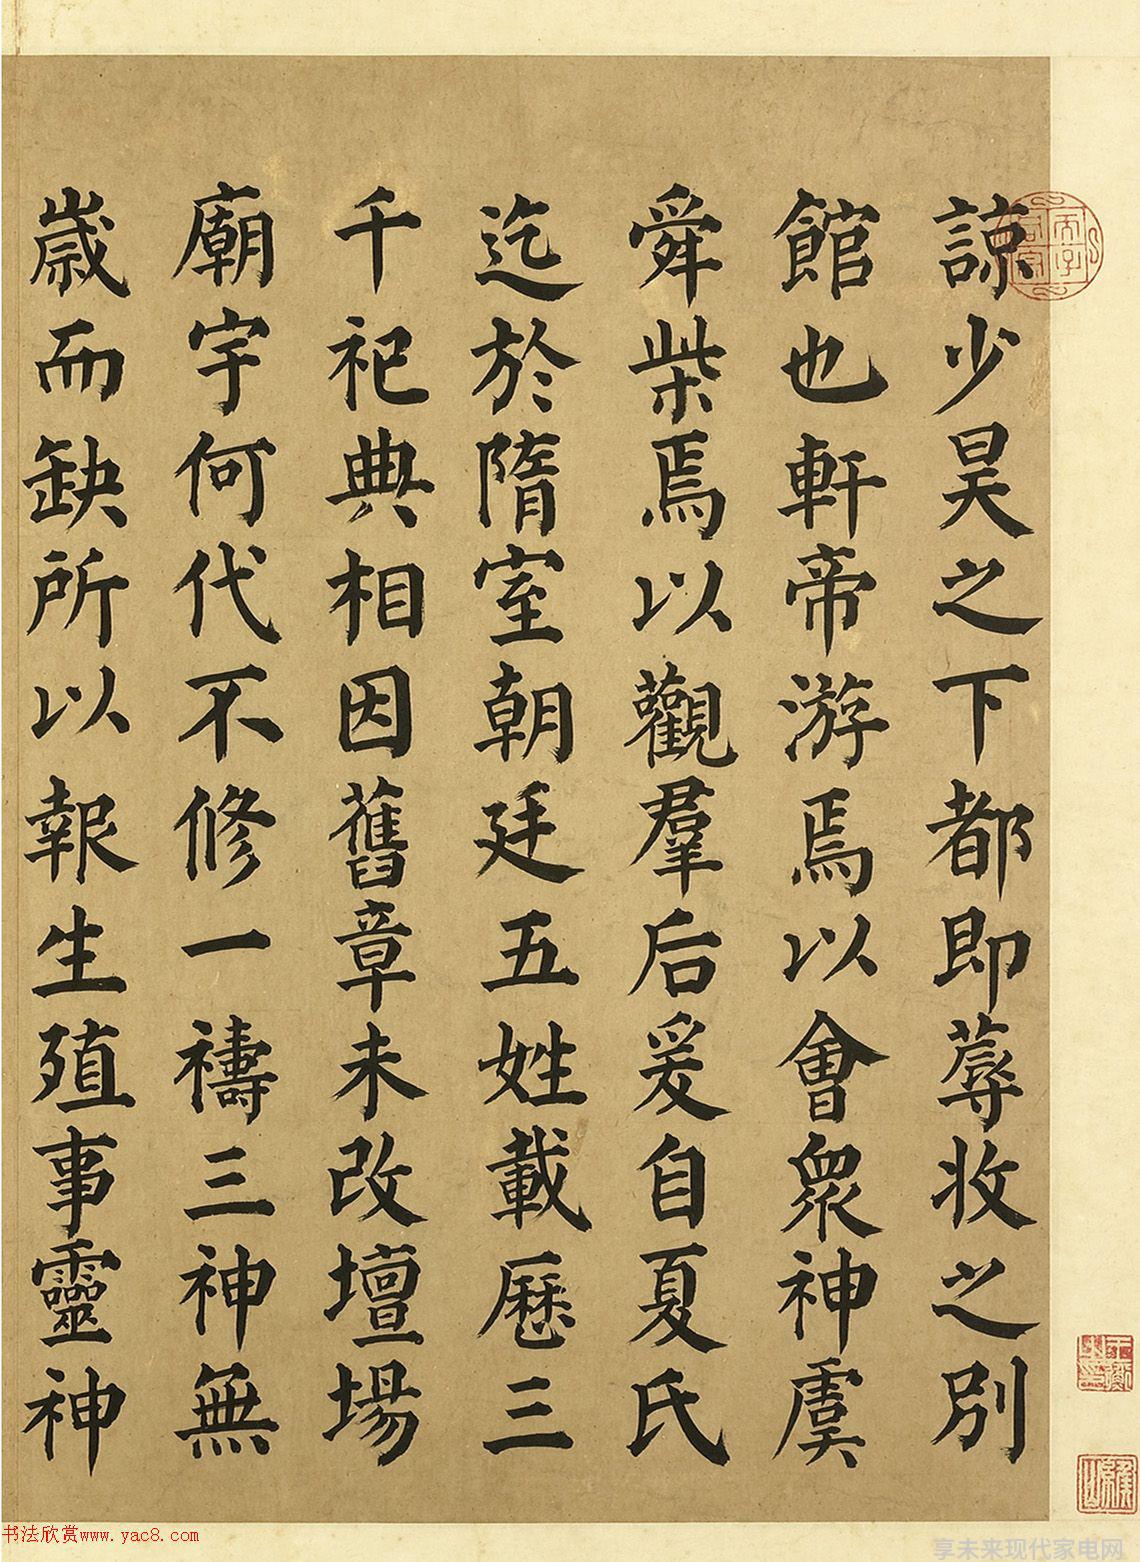 諒少昊之下都即蓐收之別
館也軒帝游焉以會眾神虞
舜柴焉以觀羣后爰自夏氏
迄於隋室朝廷五姓載歷三
千祀典相因舊章未改壇場
廟宇何代不修一禱三神無
歲而缺所以報生殖事靈神
书法欣赏www.yac8.com
享未来现代家电网